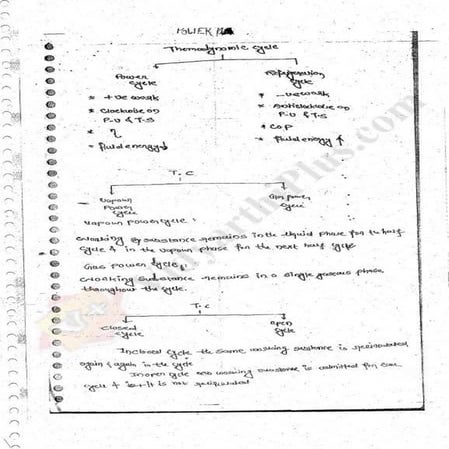 Thermodynamic cycle
Power cycle
Refrigeration cycle
* +ve work
* -ve work
* Clockwise on P-V & T-S
* Anticlockwise on P-V & T-S
* η
* COP
* fluid energy↓
* fluid energy ↑
T.C
Vapour Power cycle
Gas power cycle
Vapour power cycle:
Working substance remains in the liquid phase for half
cycle & in the vapour phase for the next half cycle
Gas power cycle:
Working substance remains in a single gaseous phase
throughout the cycle.
T.C
Closed cycle
open cycle
In closed cycle the same working substance is recirculated
again & again in the cycle
In open cycle working substance is admitted for
cycle & it is not recirculated